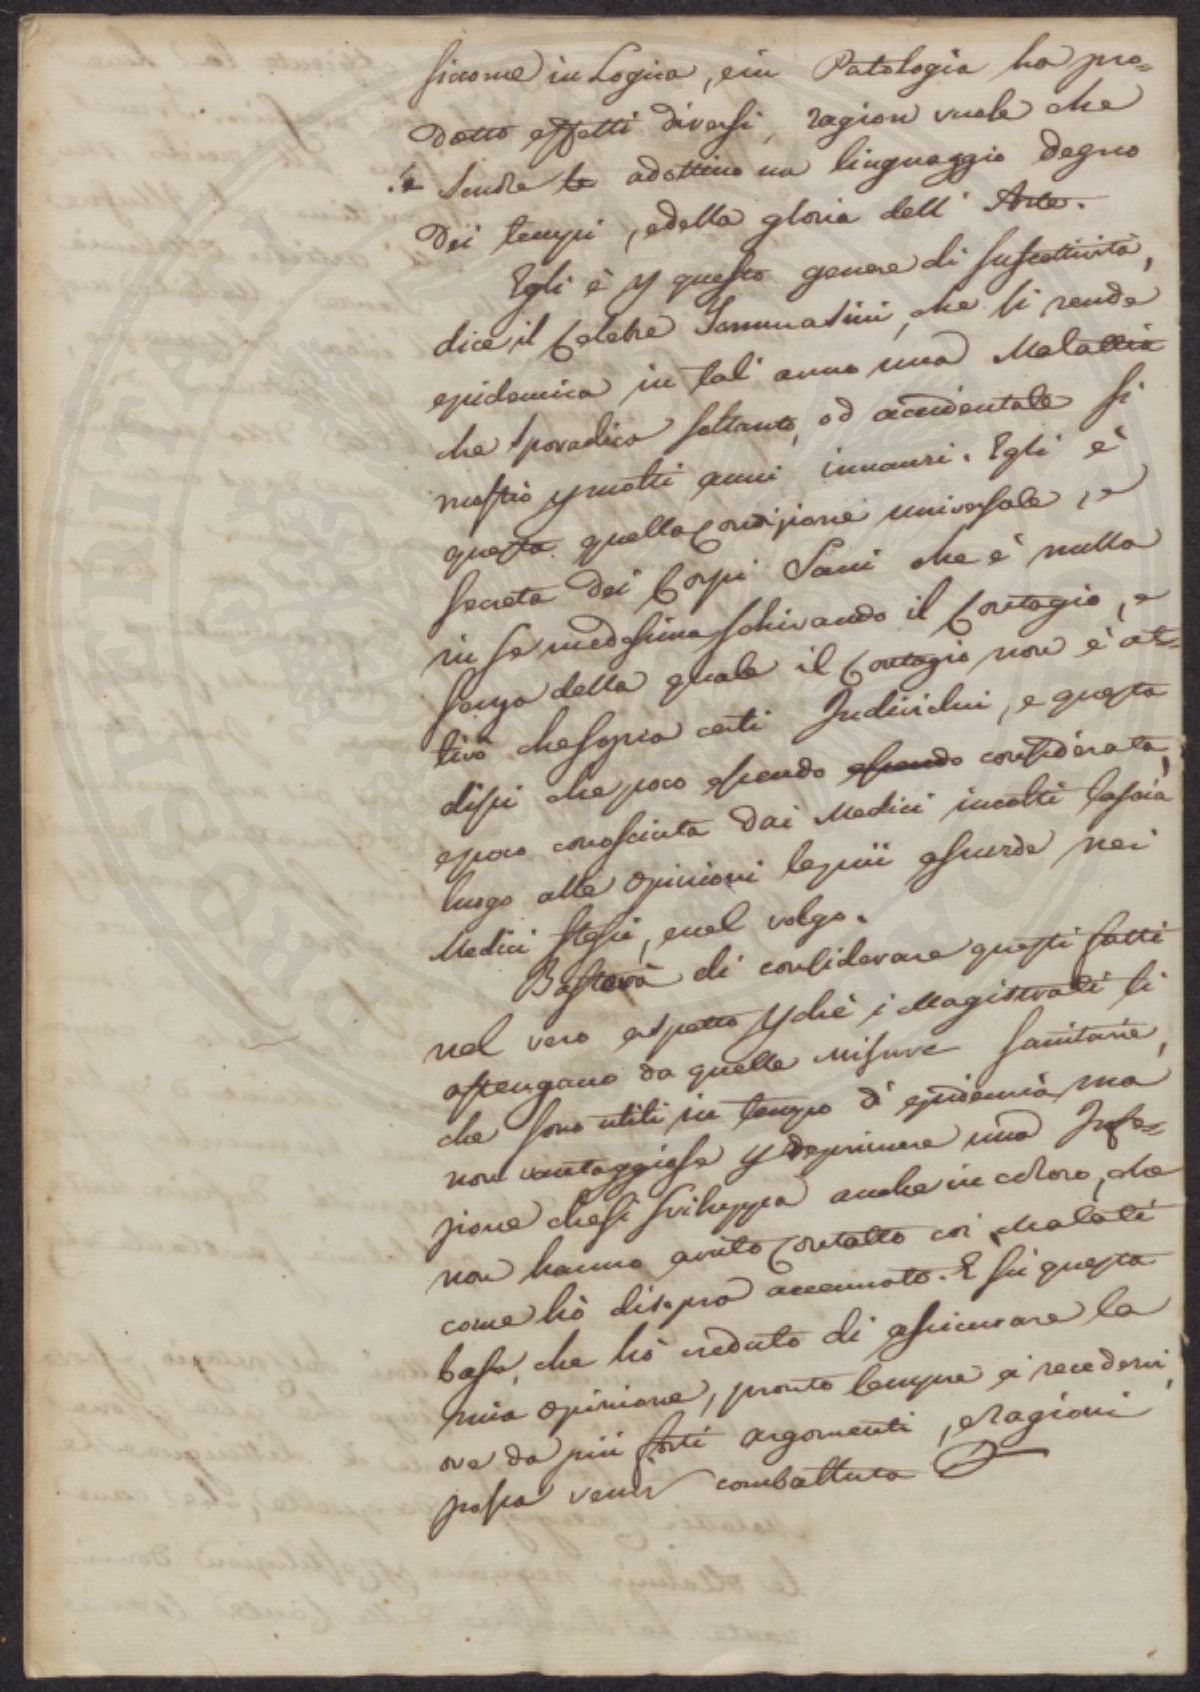 siccome in Logica, e in Patologia ha pro=
dotto effetti diversi, ragion vuole che
le Scuole adottino un linguaggio degno
dei tempi, e della gloria dell' Arte.
Egli è p questo genere di suscettività,
dice il Celebre Tommasini, che si rende
epidemica in tali anno una Malattia
che sporadica soltanto, od accidentale si
mostrò p molti anni innanzi. Egli è
questa quella Condizione universale, e
secreta dei Corpi Sani che è nulla
in se medesima schivando il Contagio, e
senza della quale il Contagio non è at=
tivo che sopra certi Individui, e questa
dissi che poco essendo essendo considerata,
e poco conosciuta dai Medici incolti lascia
luogo alle opinioni le più assurde nei
Medici stessi, e nel volgo.
Basterà di considerare questi fatti
nel vero aspetto p chè i Magistrati si
astengano da quelle misure sanitarie,
che sono utili in tempo di epidemia, ma
non vantaggiose p deprimere una Infe=
zione che si sviluppa anche in coloro, che
non hanno avuto Contatto coi Malati
come hò di sopra accennato. E su questa
base, che hò creduto di assicurare la
mia opinione, pronto sempre a recedervi,
ove da più forti argomenti, e ragioni
possa venir combattuta